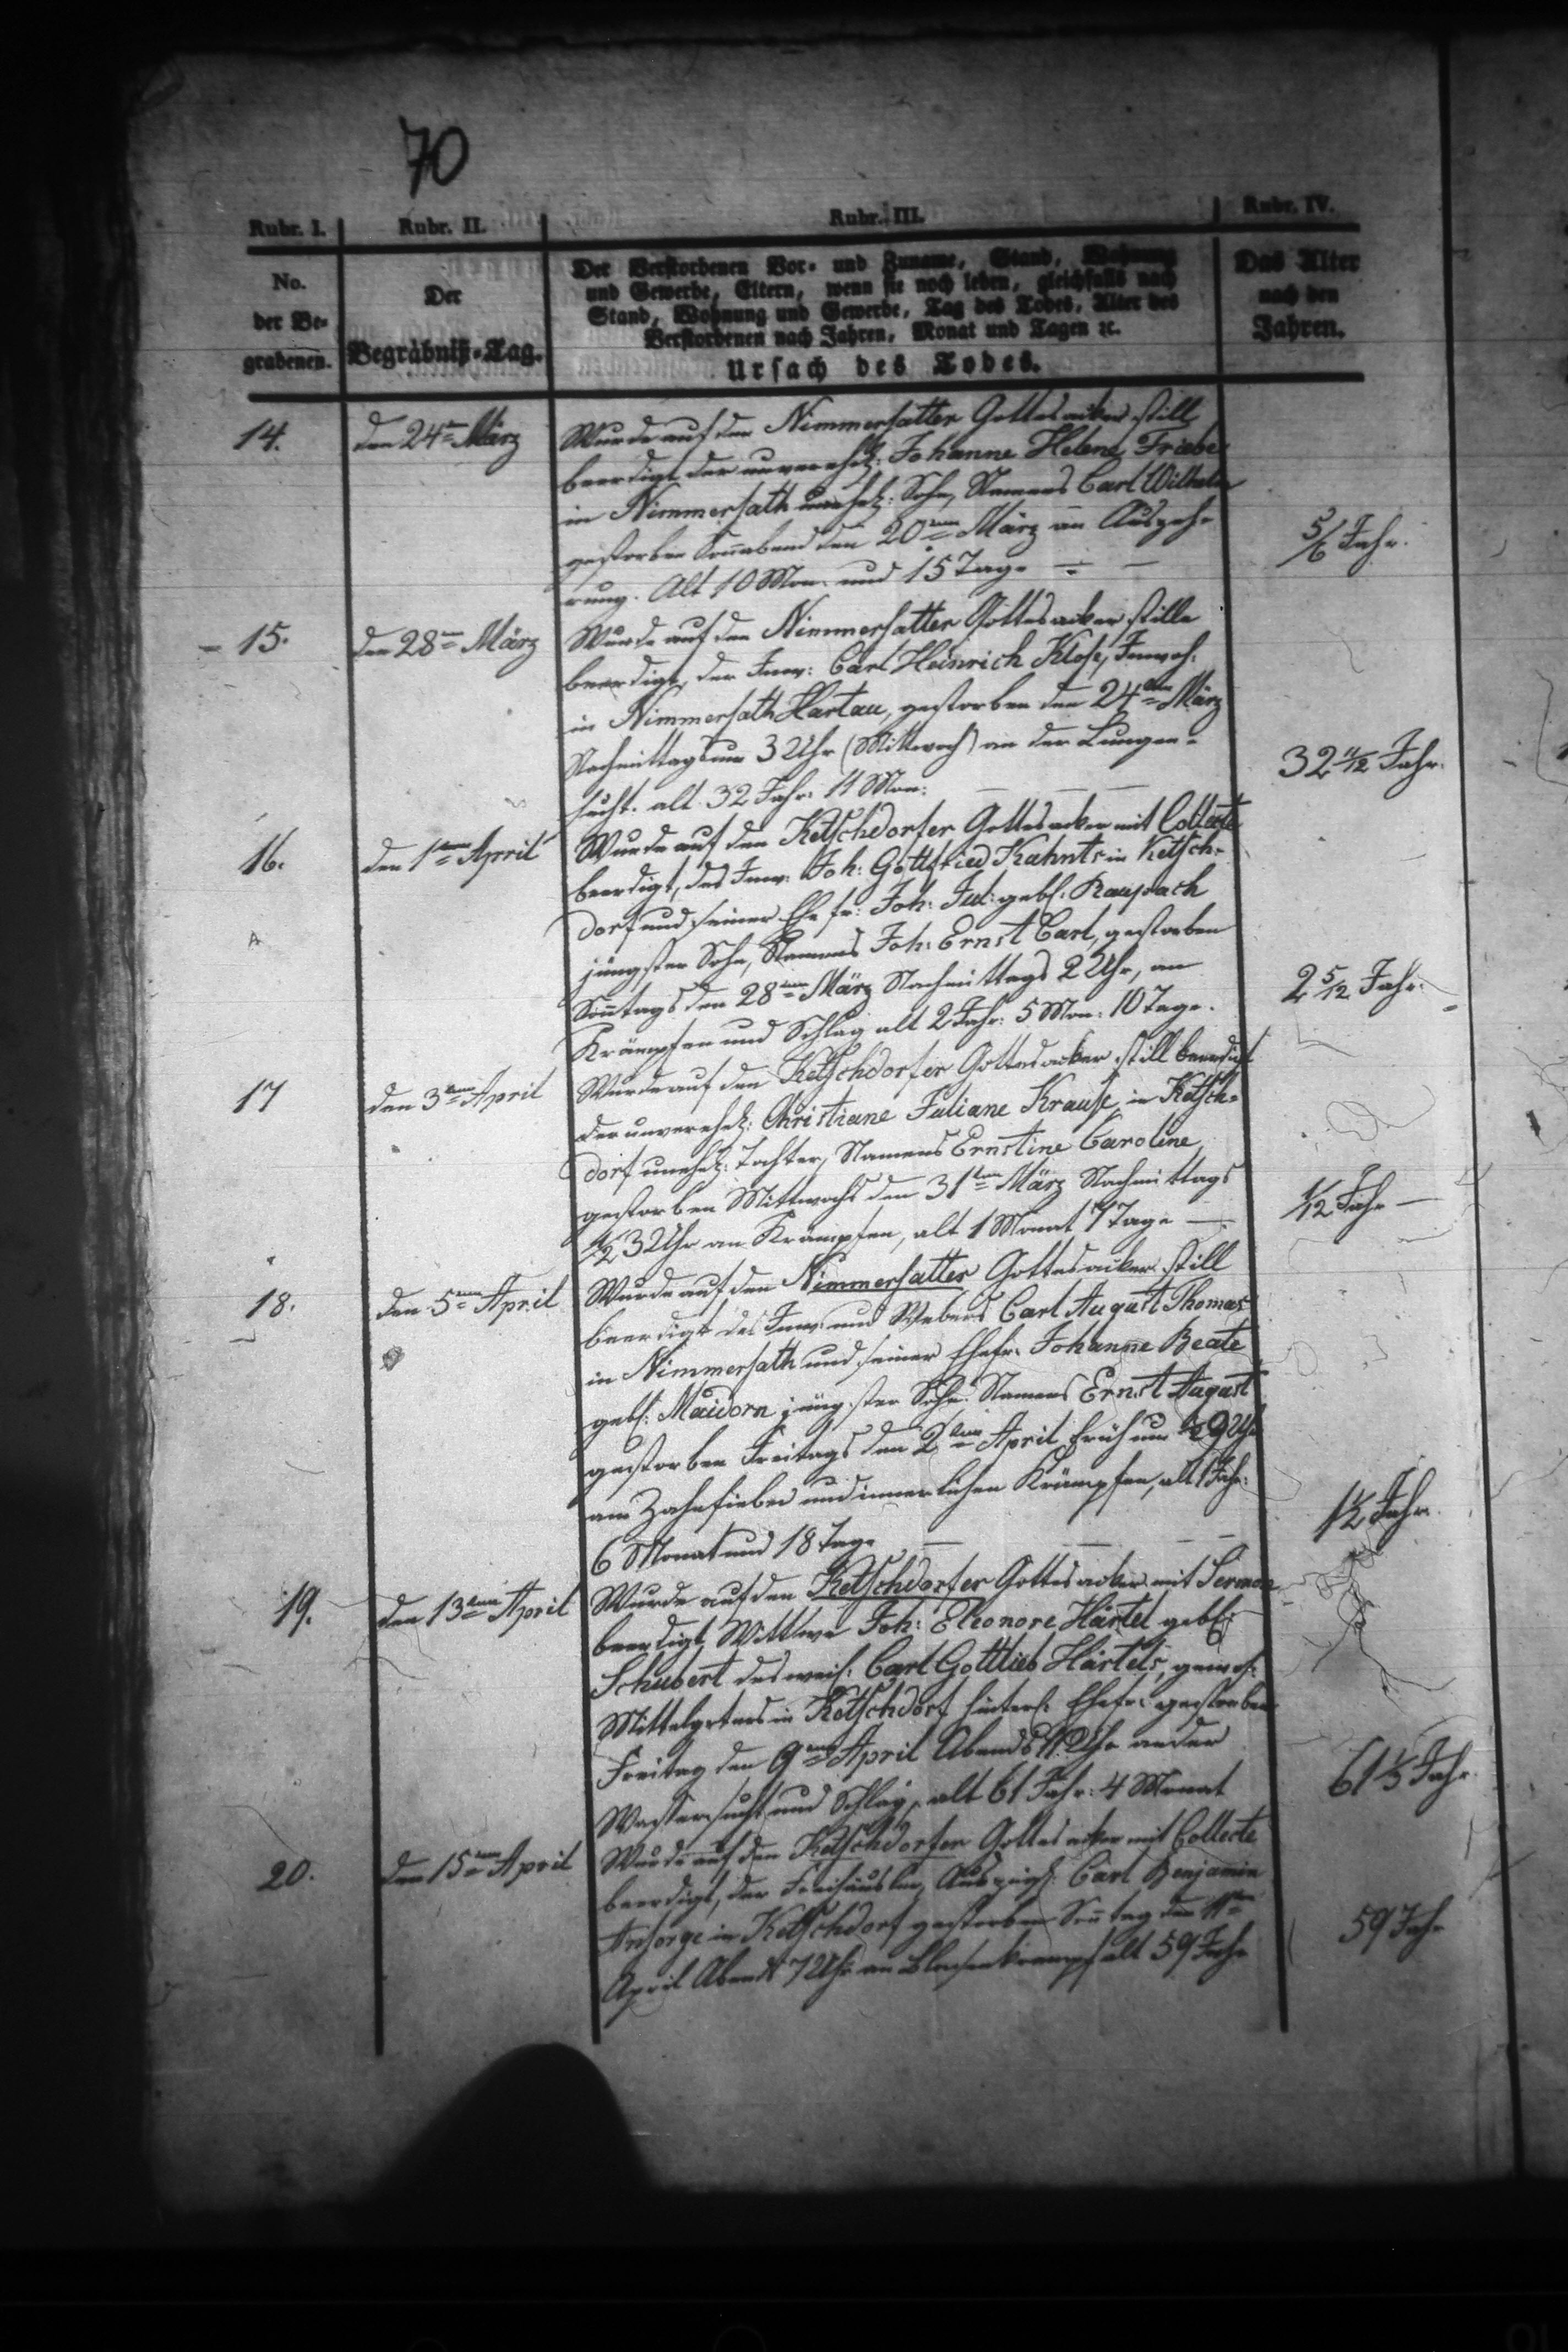 70
Rubr. I. Rubr. II. Rubr. III. Rubr. IV.
No. der Be- grabenen.
Der Begräbniß-Tag.
Der Verstorbenen Vor- und Zuname, Stand, Wohnung
und Gewerbe, Eltern, wenn sie noch leben, gleichfalls nach
Stand, Wohnung und Gewerbe, Tag des Todes, Alter des
Verstorbenen nach Jahren, Monat und Tagen ꝛc.
Ursach des Todes.
Das Alter nach den Jahren.
14. den 24ten März Wurde auf den Nimmersatter Gottesacker still
beerdigt der unverehel: Johanne Helene Friebe
in Nimmersath unehel: Sohn, Namens Carl Wilhelm
gestorben Sonnabend den 20ten März an Auszeh-
rung. Alt 10 Mon: und 15 Tage 5/6 Jahr.
15. den 28ten März Wurde auf den Nimmersatter Gottesacker stille
beerdigt, der Inw: Carl Heinrich Klose, Inwoh:
in Nimmersath Hartau, gestorben den 24ten März
Nachmittags um 3 Uhr (Mittwoch) an der Lungen-
sucht. alt 32 Jahr: 11 Mon: 32 11/12 Jahr.
16. den 1ten April Wurde auf den Ketschdorfer Gottesacker mit Collecte
beerdigt, des Inw: Joh: Gottfried Kahnts in Ketsch-
dorf und seiner Ehefr: Joh: Jul: geb: Raupach
jüngster Sohn, Namens Joh: Ernst Carl, gestorben
Sonntags den 28ten März Nachmittags 2 Uhr, an
Krämpfen und Schlag alt 2 Jahr: 5 Mon: 10 Tage. 2 5/12 Jahr.
17 den 3ten April Wurde auf den Ketschdorfer Gottesacker still beerdigt
der unverehel: Christiane Juliane Krause, in Ketsch-
dorf unehel: Tochter, Namens Ernstine Caroline,
gestorben Mittwochs den 31ten März Nachmittags
1/2 3 Uhr an Krämpfen, alt 1 Monat 7 Tage 1/12 Jahr
18. den 5ten April Wurde auf den Nimmersatter Gottesacker still
beerdigt des Inw: und Webers Carl August Thomas
in Nimmersath und seiner Ehefr: Johanne Beate
geb: Maiworn jüngster Sohn Namens Ernst August
gestorben Freitags den 2ten April früh um 1/2 9 Uhr
am Zahnfieber und innerlichen Krämpfen, alt 1 Jahr:
6 Monat und 18 Tage 1 1/2 Jahr.
19. den 13ten April Wurde auf den Ketschdorfer Gottesacker mit Sermon
beerdigt, Wittwe Joh: Eleonore Härtel geb:
Schubert des weil: Carl Gottlieb Härtels, gewes:
in Ketschdorf hinterl: Ehefr: gestorben
Freitag den 9ten April Abends Uhr an der
Wassersucht und Schlag, alt 61 Jahr: 4 Monat 61 1/3 Jahr.
20. den 15ten April Wurde auf den Ketschdorfer Gottesacker mit Collecte
beerdigt, der Freihäusler Auszügl: Carl Benjamin
Ansorge in Ketschdorf gestorben Sonntag den 11ten
April Abends 7 Uhr an alt 59 Jahr 59 Jahr